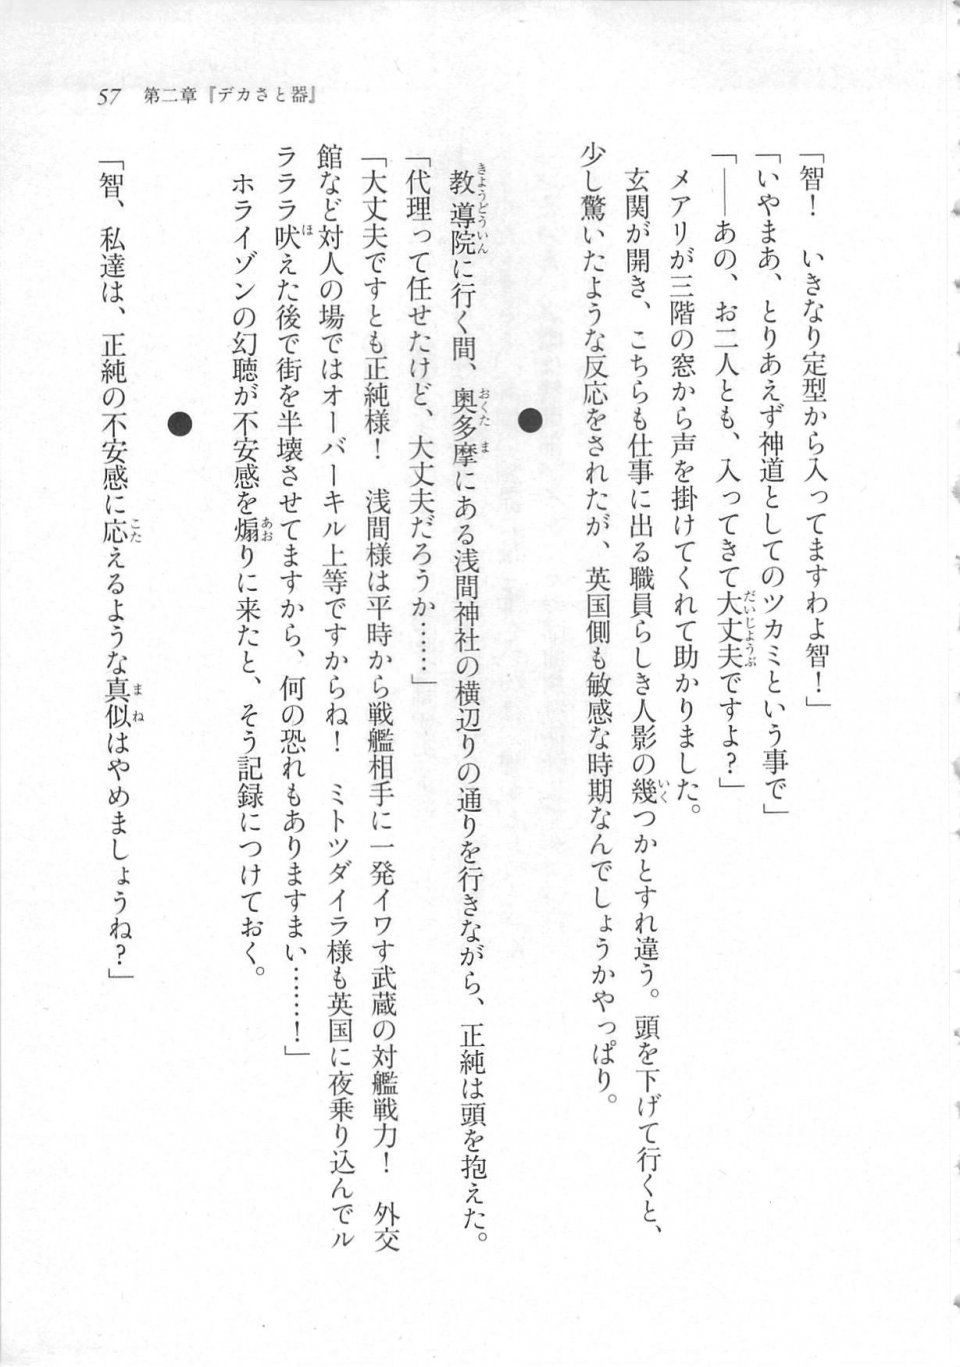 57　第二章『デカさと器』
「智！　いきなり定型から入ってますわよ智！」
「いやまあ、とりあえず神道としてのツカミという事で」
「――あの、お二人とも、入ってきて大丈夫ですよ？」
メアリが三階の窓から声を掛けてくれて助かりました。
玄関が開き、こちらも仕事に出る職員らしき人影の幾つかとすれ違う。頭を下げて行くと、
少し驚いたような反応をされたが、英国側も敏感な時期なんでしょうかやっぱり。
●
教導院に行く間、奥多摩にある浅間神社の横辺りの通りを行きながら、正純は頭を抱えた。
「代理って任せたけど、大丈夫だろうか……」
「大丈夫ですとも正純様！　浅間様は平時から戦艦相手に一発イワす武蔵の対艦戦力！　外交
館など対人の場ではオーバーキル上等ですからね！　ミトツダイラ様も英国に夜乗り込んでル
ラララ吠えた後で街を半壊させてますから、何の恐れもありますまい……！」
ホライゾンの幻聴が不安感を煽りに来たと、そう記録につけておく。
●
「智、私達は、正純の不安感に応えるような真似はやめましょうね？」